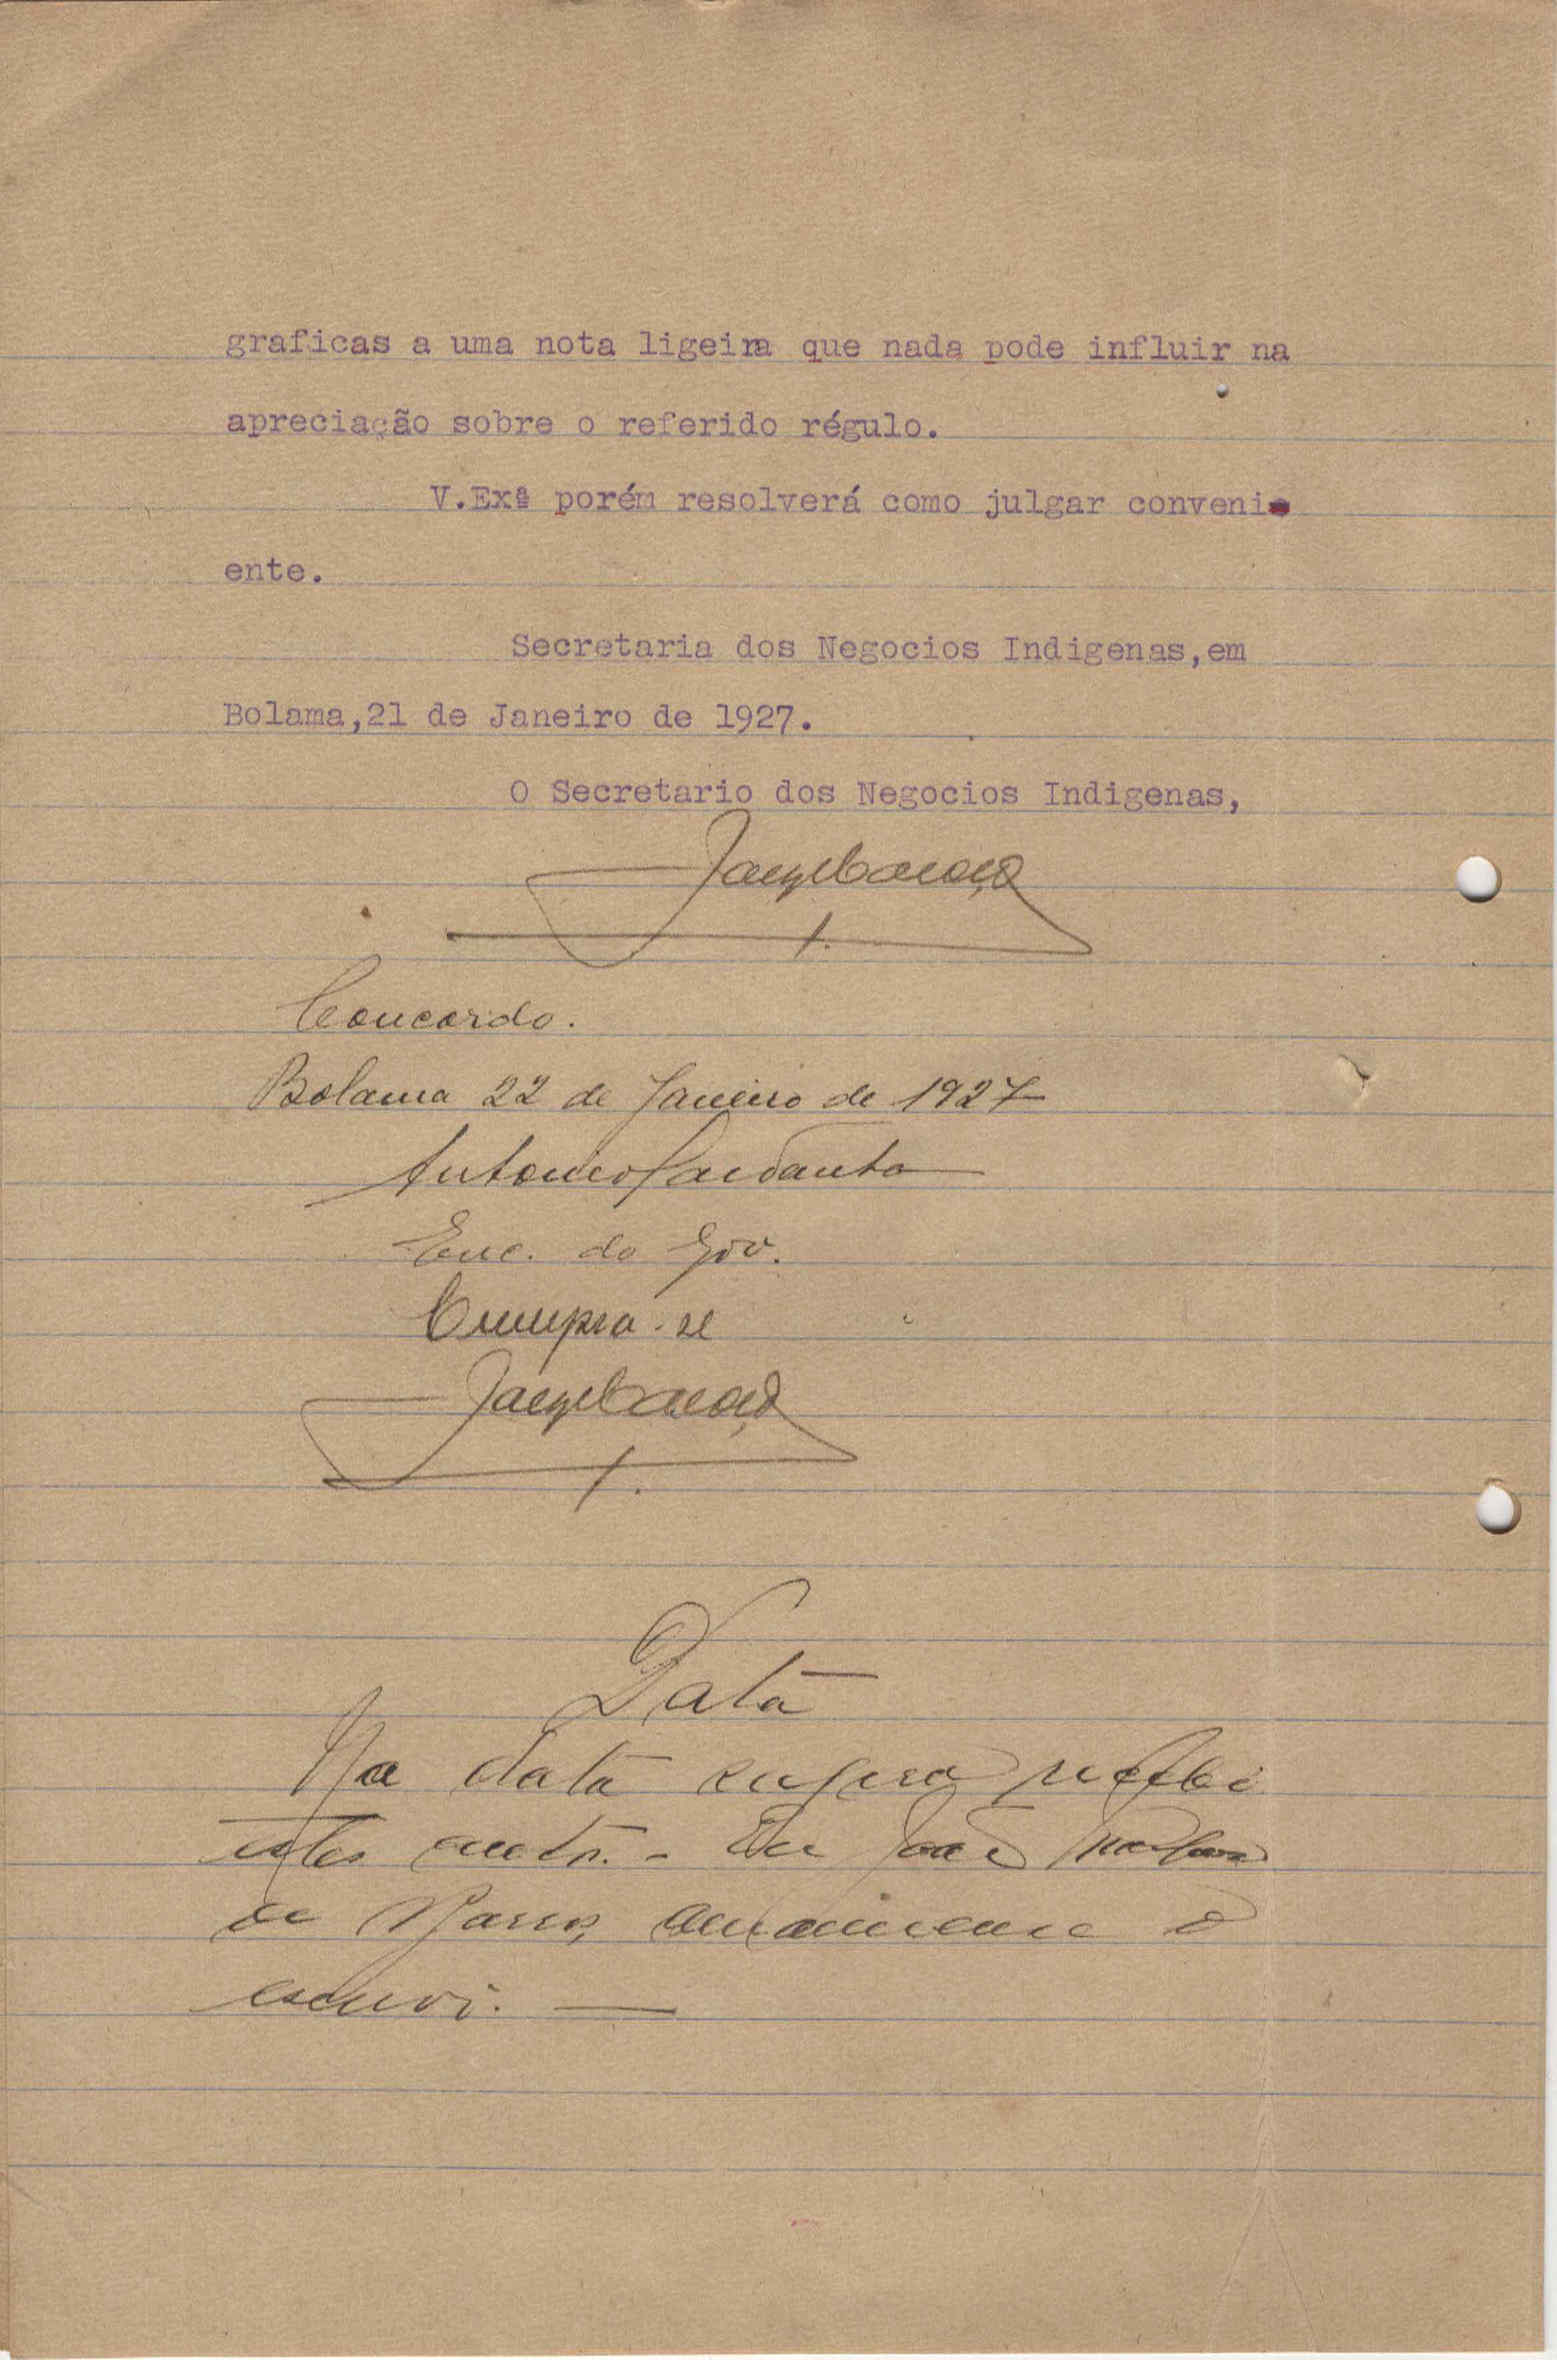 graficas a uma nota ligeira que nada pode influir na
apreciação sobre o referido régulo.
V.Exª porém resolverá como julgar conveni
ente.
Secretaria dos Negocios Indigenas,em
Bolama,21 de Janeiro de 1927.
O Secretario dos Negocios Indigenas,
Concordo.
Bolama 22 de Janeiro de 1927
Antonio
Enc. do Gov.
Cumpra-se
Data
Na data supra recebi
estes autos. - Eu João
de Barros, o
escrevi.